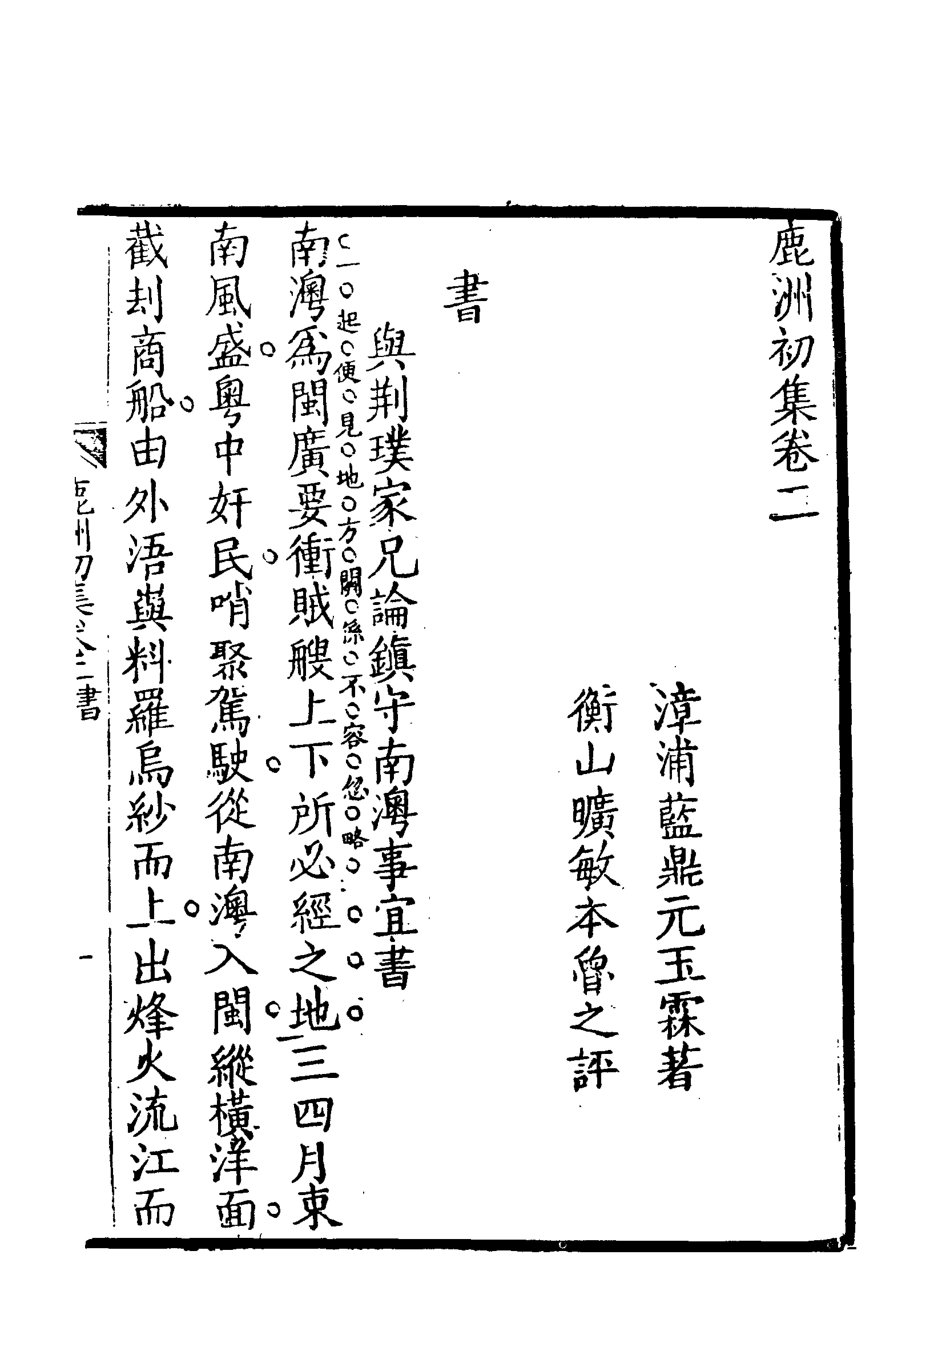 鹿洲初集卷二
漳浦藍鼎元玉霖著
衡山曠敏本魯之評
書
與荆璞家兄論鎮守南澳事宜書
一起便見地方關係不容忽略
南澳爲閩廣要衝賊艘上下所必經之地三四月東
南風盛粤中奸民哨聚駕駛從南澳入閩縱橫洋面
截刦商船由外浯與料羅烏紗而上出烽火流江而
鹿洲初集卷二書
一